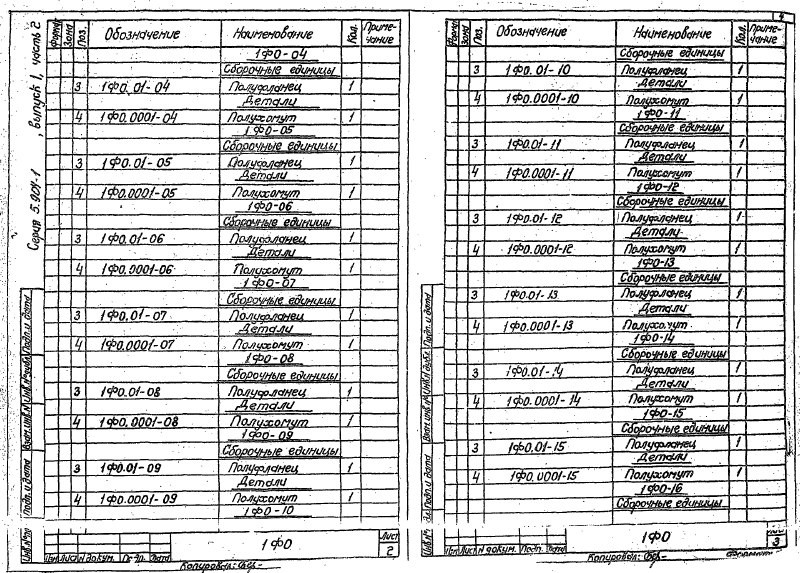 Серия 5.901-1, выпуск 1, часть 2
Форма Зона Поз. Обозначение Наименование Кол. Примечание
1Ф0-04
Сборочные единицы
3 1Ф0.01-04 Полуфланец 1
Детали
4 1Ф0.0001-04 Полухомут 1
1Ф0-05
Сборочные единицы
3 1Ф0.01-05 Полуфланец 1
Детали
4 1Ф0.0001-05 Полухомут 1
1Ф0-06
Сборочные единицы
3 1Ф0.01-06 Полуфланец 1
Детали
4 1Ф0.0001-06 Полухомут 1
1Ф0-07
Сборочные единицы
3 1Ф0.01-07 Полуфланец 1
Детали
4 1Ф0.0001-07 Полухомут 1
1Ф0-08
Сборочные единицы
3 1Ф0.01-08 Полуфланец 1
Детали
4 1Ф0.0001-08 Полухомут 1
1Ф0-09
Сборочные единицы
3 1Ф0.01-09 Полуфланец 1
Детали
4 1Ф0.0001-09 Полухомут 1
1Ф0-10
Подп. и дата
Взам. инв. №
Подп. и дата
Изм. Лист № докум. Подп. Дата
1Ф0
Лист
2
Копировал:
4
Форма Зона Поз. Обозначение Наименование Кол. Примечание
Сборочные единицы
3 1Ф0.01-10 Полуфланец 1
Детали
4 1Ф0.0001-10 Полухомут 1
1Ф0-11
Сборочные единицы
3 1Ф0.01-11 Полуфланец 1
Детали
4 1Ф0.0001-11 Полухомут 1
1Ф0-12
Сборочные единицы
3 1Ф0.01-12 Полуфланец 1
Детали
4 1Ф0.0001-12 Полухомут 1
1Ф0-13
Сборочные единицы
3 1Ф0.01-13 Полуфланец 1
Детали
4 1Ф0.0001-13 Полухомут 1
1Ф0-14
Сборочные единицы
3 1Ф0.01-14 Полуфланец 1
Детали
4 1Ф0.0001-14 Полухомут 1
1Ф0-15
Сборочные единицы
3 1Ф0.01-15 Полуфланец 1
Детали
4 1Ф0.0001-15 Полухомут 1
1Ф0-16
Сборочные единицы
Подп. и дата
Взам. инв. №
Подп. и дата
Изм. Лист № докум. Подп. Дата
1Ф0
3
Копировал:
Формат